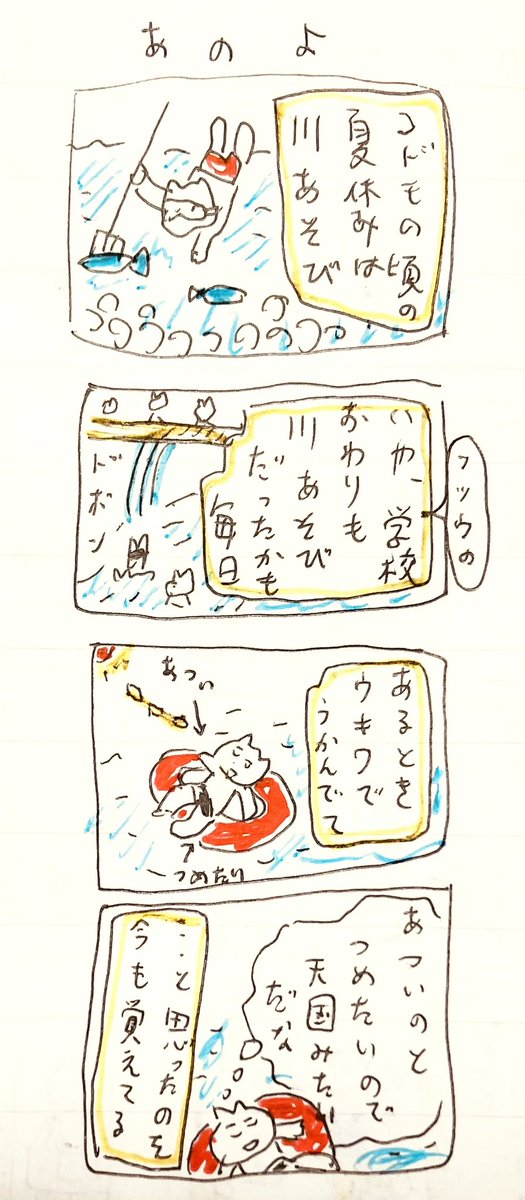 あのよ
コドモの頃の
夏休みは
川あそび
フツウの
いや、学校
おわりも
川あそび
だったかも
毎日
ドボン
あるとき
ウキワで
うかんでて
あつい
つめたい
あついのと
つめたいので
天国みたい
だな
こと思ったのを
今も覚えてる